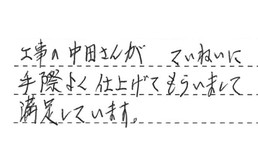 工事の中田さんが ていねいに
手際よく仕上げてもらいまして
満足しています。